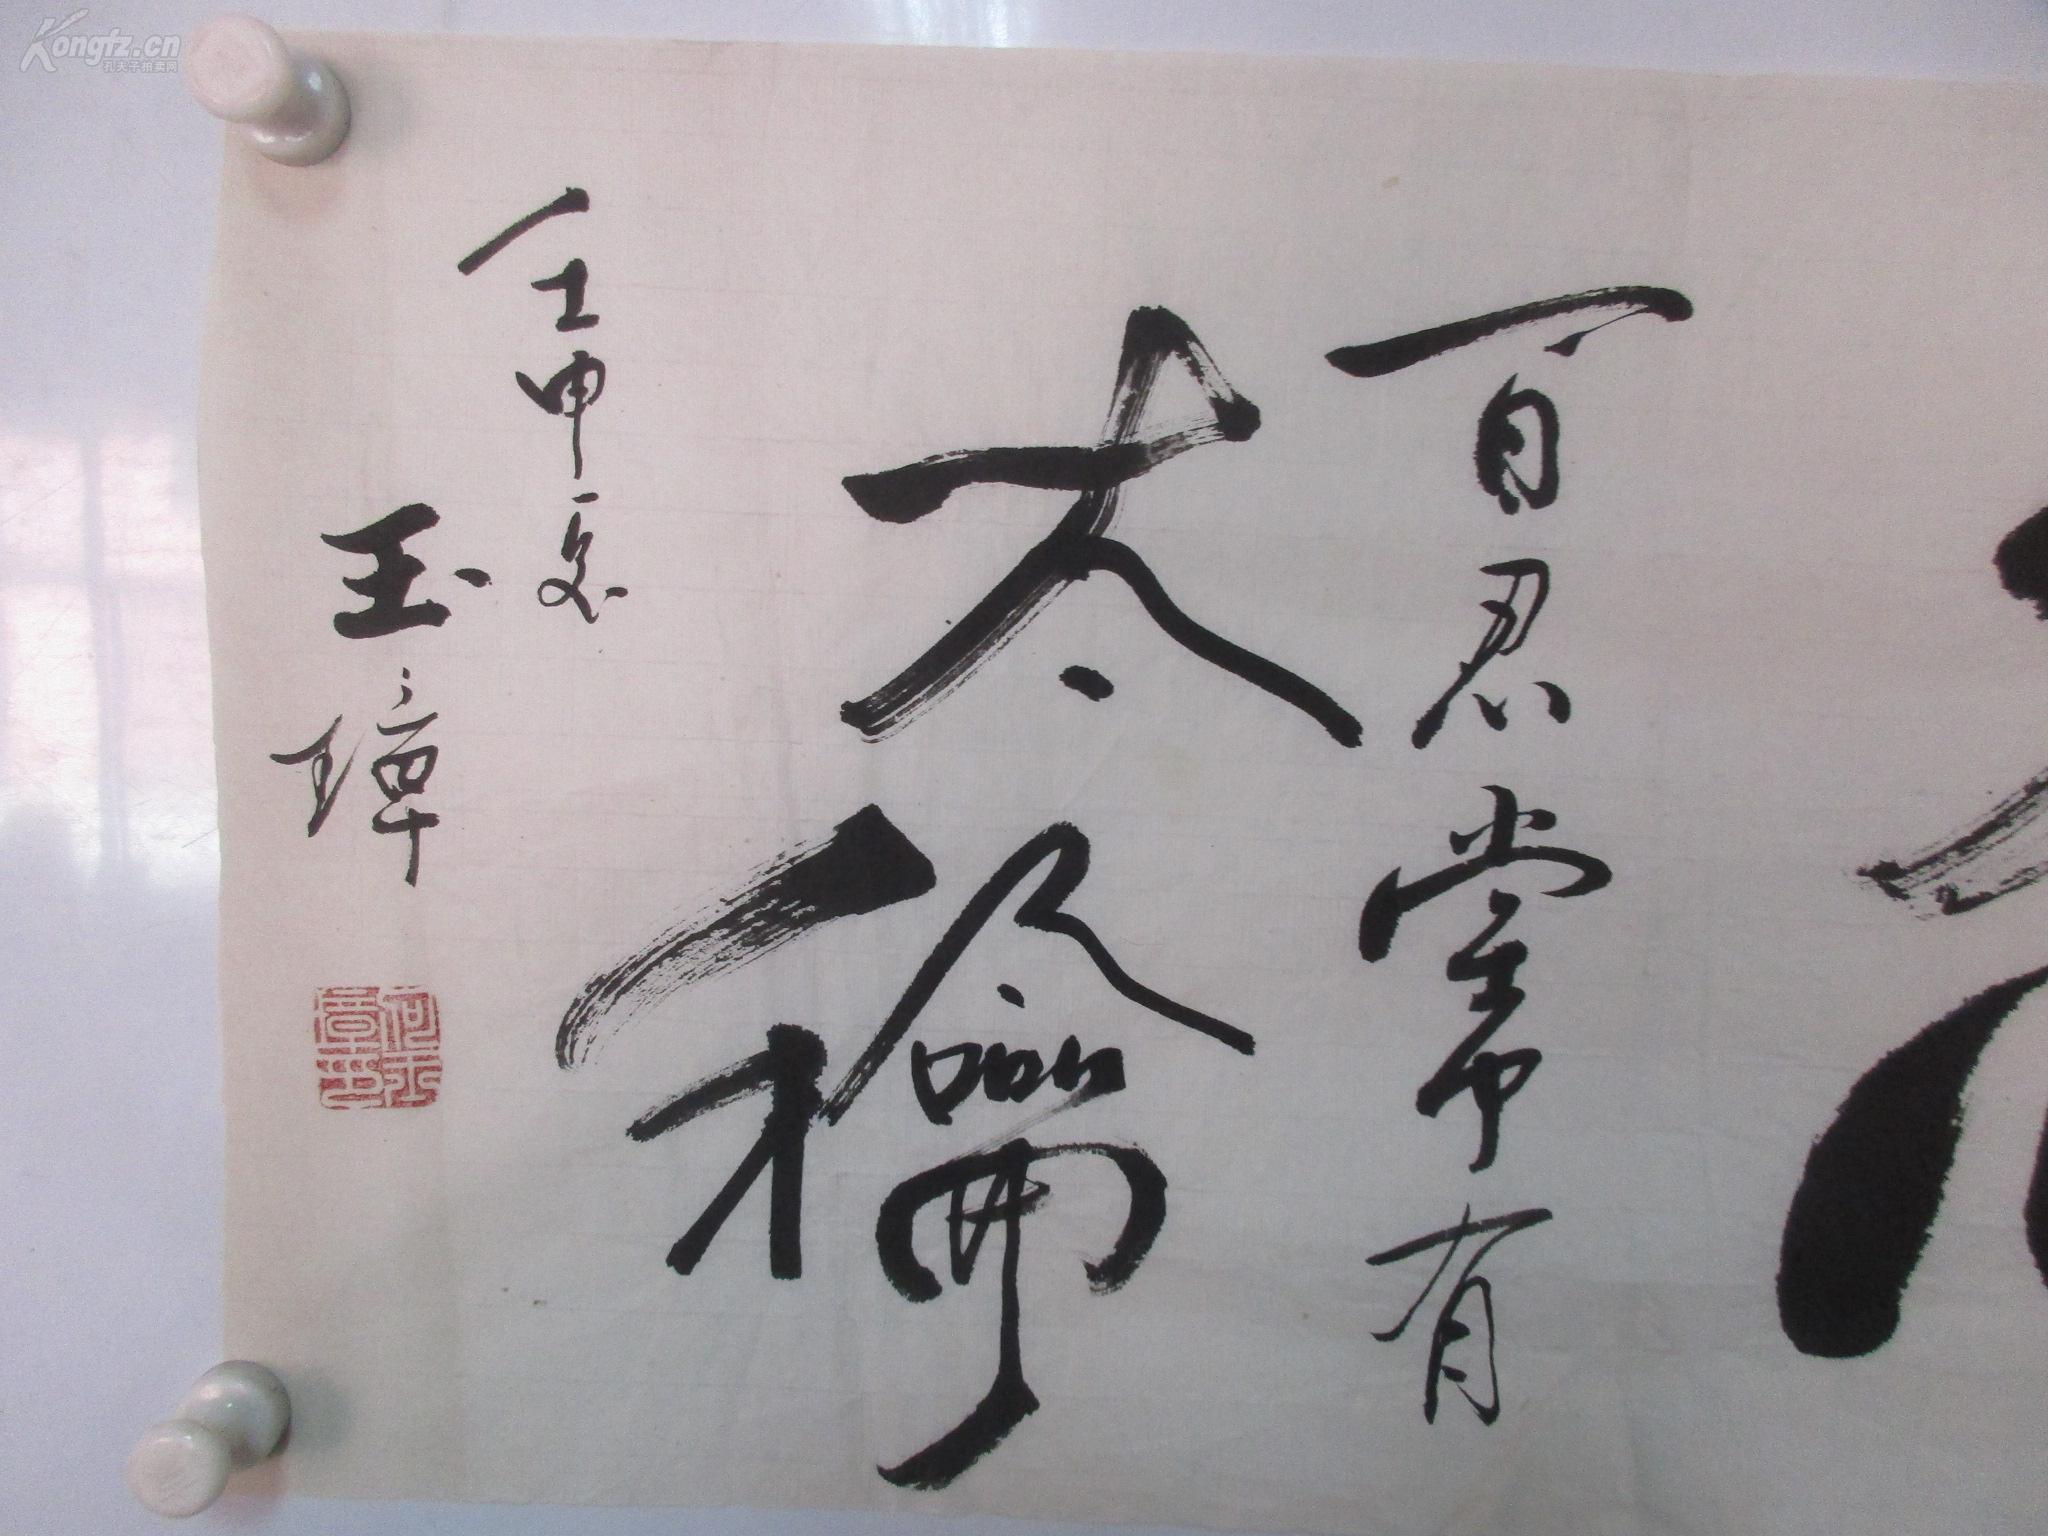 百忍常有
太龢
壬申夏
玉璋
Kongfz.cn
孔夫子拍卖网